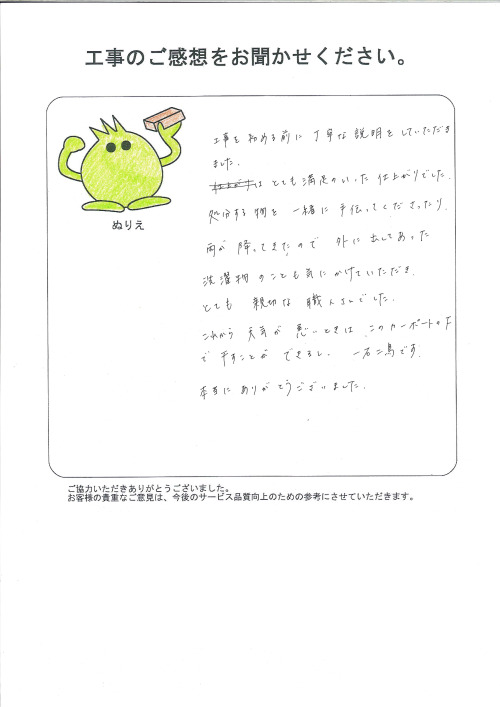 工事のご感想をお聞かせください。
工事を始める前に丁寧な説明をしていただき
ました。
はとても満足のいった仕上がりでした。
処分する物を一緒に手伝ってくださったり、
雨が降ってきたので外に出してあった
洗濯物のことも気にかけていただき、
とても親切な職人さんでした。
これから天気が悪いときはこのカーポートの下
で干すことができるし、一石二鳥です。
本当にありがとうございました。
ぬりえ
ご協力いただきありがとうございました。
お客様の貴重なご意見は、今後のサービス品質向上のための参考にさせていただきます。